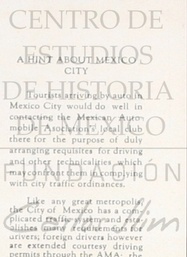 CENTRO DE
ESTUDIOS
DE HISTORIA
DE MEXICO
FUNDACIÓN
A HINT ABOUT MEXICO
CITY
Tourists arriving by auto in
Mexico City would do well in
contacting the Mexican Auto-
mobile Asociation's local club
there for the purpose of duly
arranging requisites for driving
and other technicalities which
may come up in complying
with city traffic ordinances.
Like any great metropolis,
the City of Mexico has a com-
plicated traffic system and esta-
blishes many requirements for
drivers; foreign drivers however
are extended courtesy driving
permits through the AMA; the